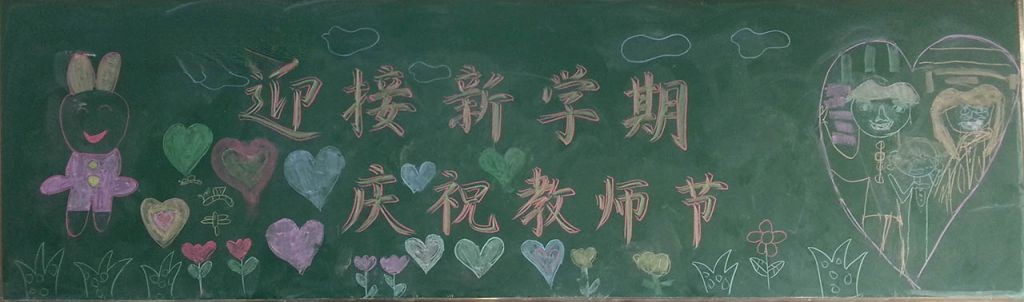 迎接新学期
庆祝教师节